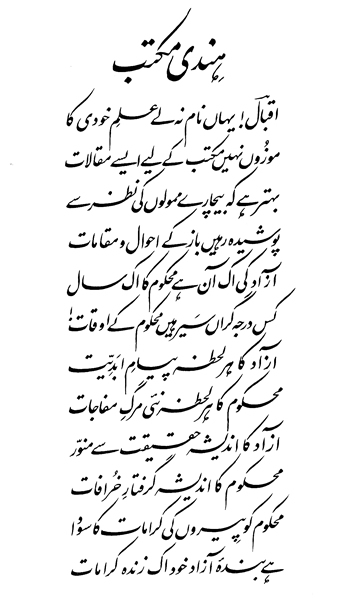 ہندی مکتب
اقبالؔ! یہاں نام نہ لے علمِ خودی کا
موزُوں نہیں مکتب کے لیے ایسے مقالات
بہتر ہے کہ بیچارے ممولوں کی نظر سے
پوشیدہ رہیں باز کے احوال و مقامات
آزاد کی اک آن ہے محکوم کا اک سال
کس درجہ گراں سَیر ہیں محکوم کے اوقات!
آزاد کا ہر لحظہ پیامِ ابدِیّت
محکوم کا ہر لحظہ نئی مرگِ مفاجات
آزاد کا اندیشہ حقیقت سے منوّر
محکوم کا اندیشہ گرفتارِ خُرافات
محکوم کو پِیروں کی کرامات کا سَودا
ہے بندۂ آزاد خود اک زندہ کرامات